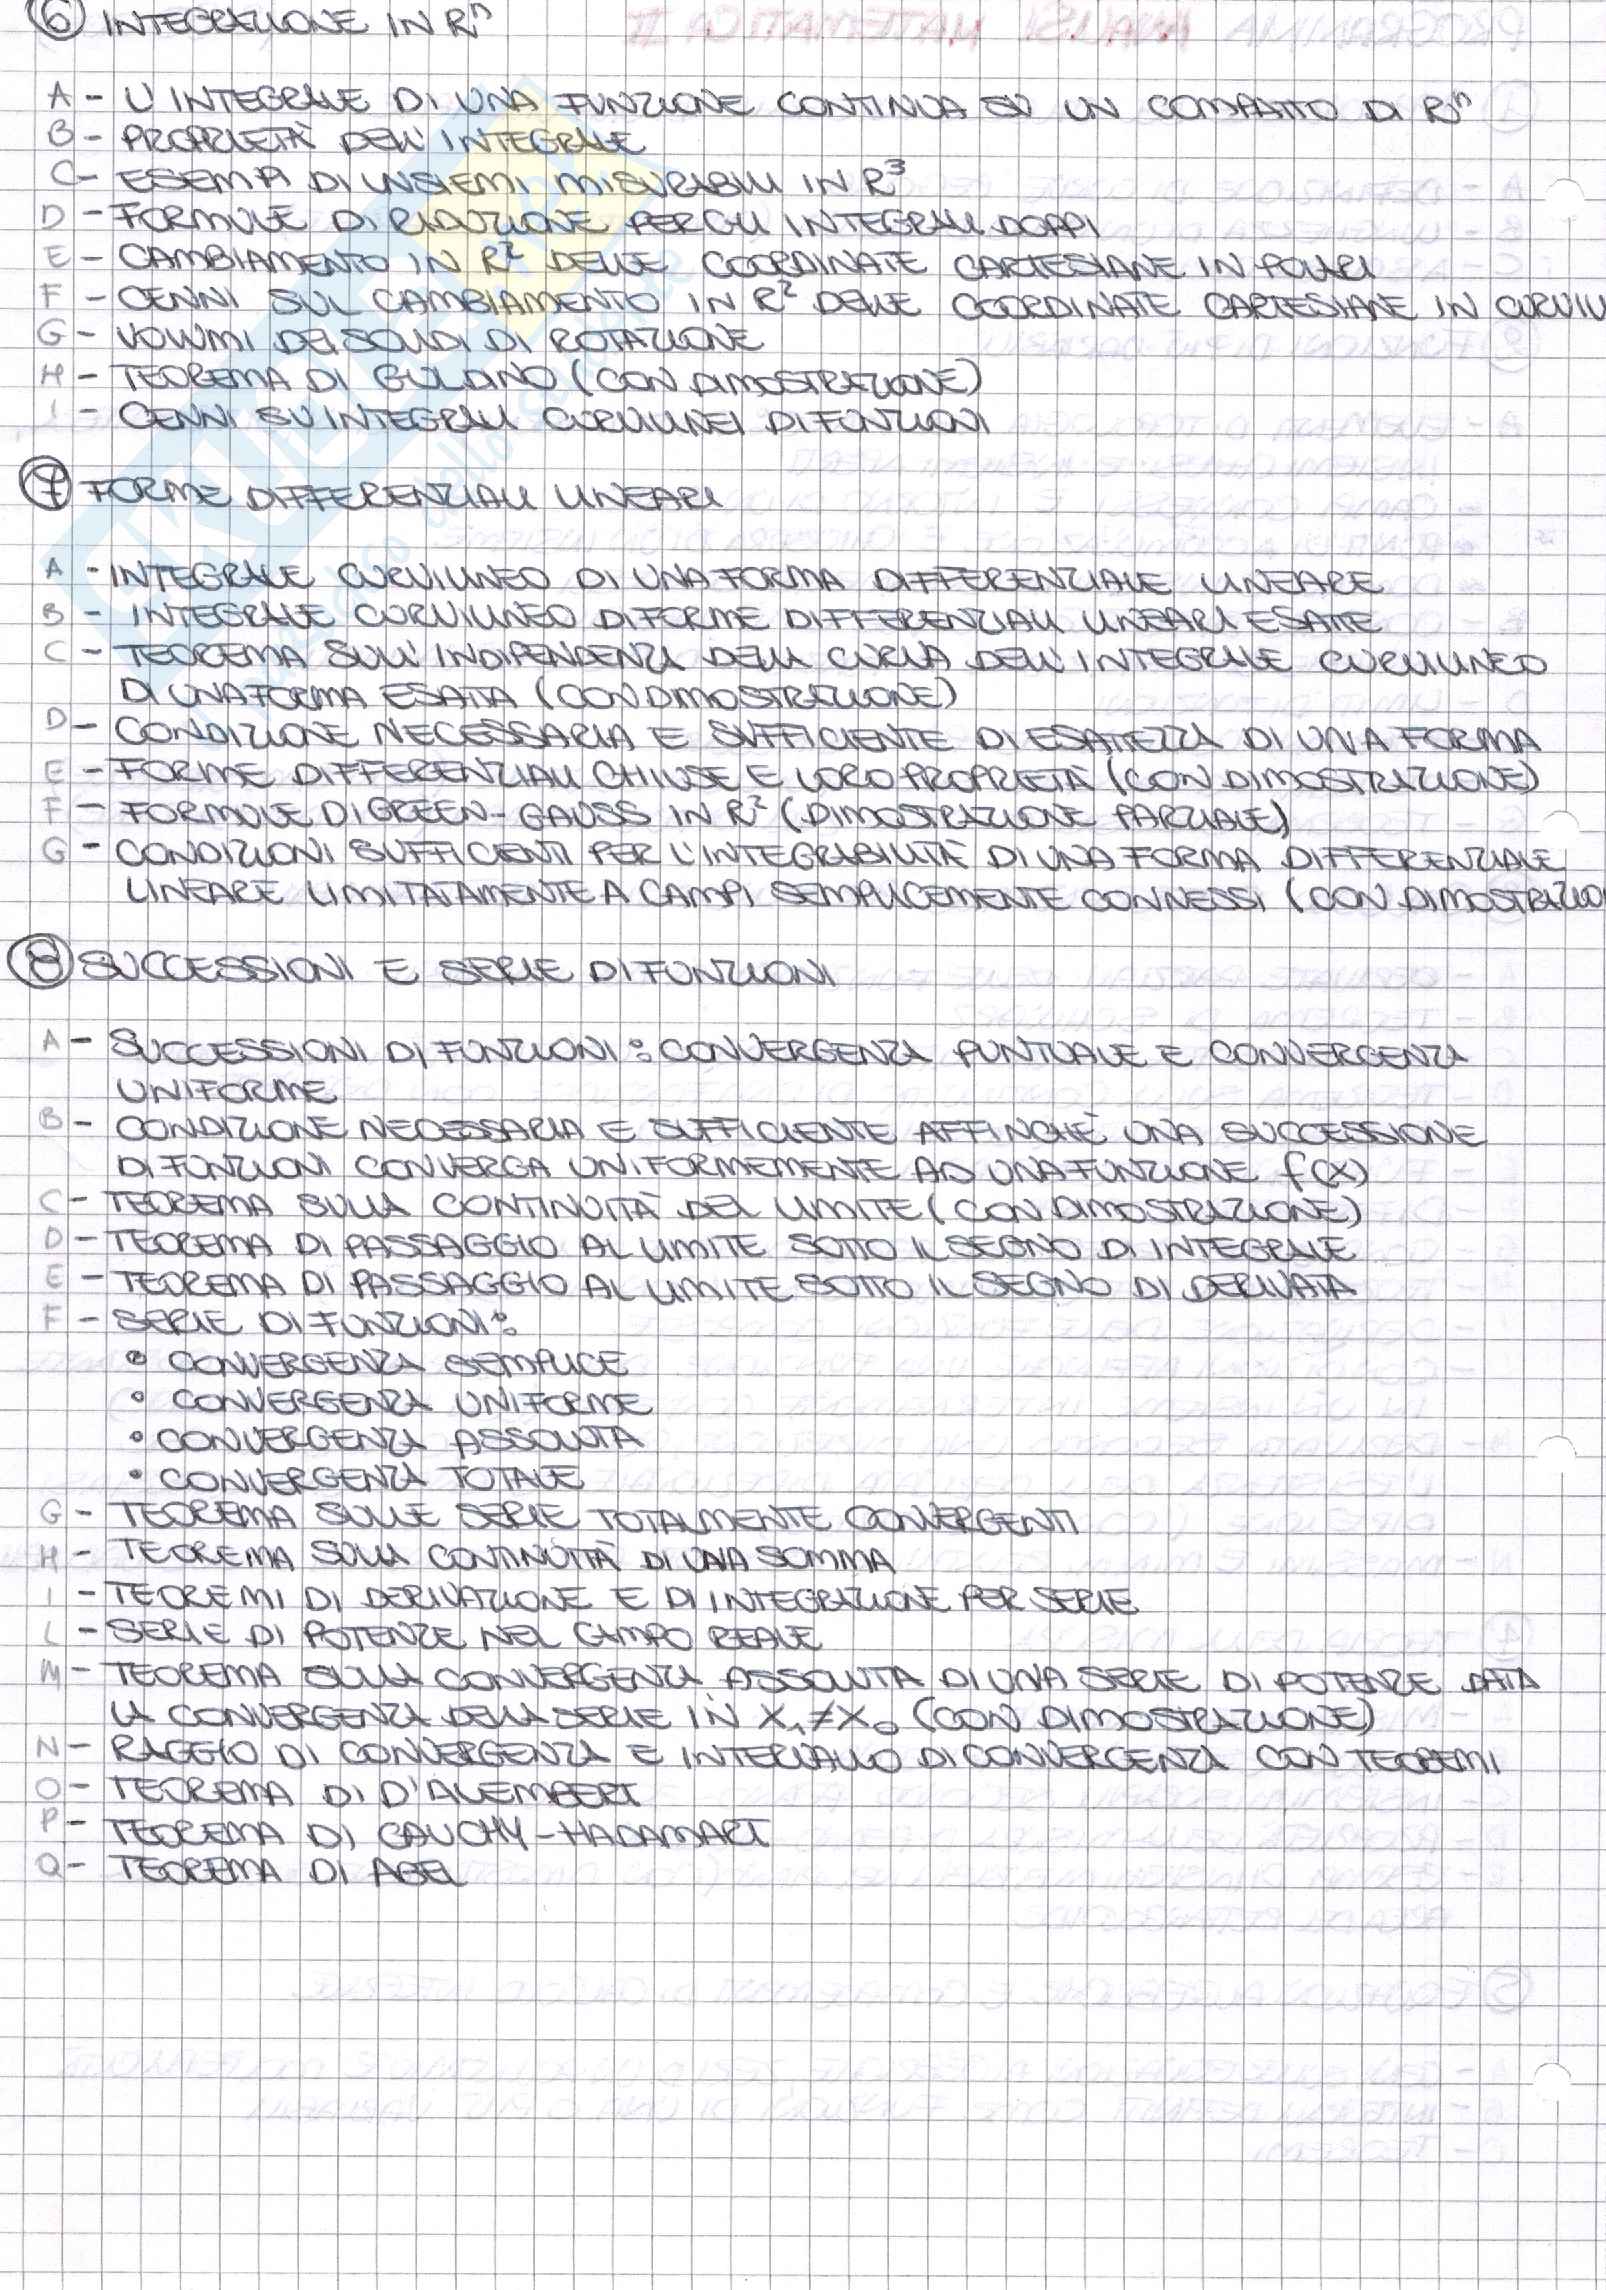 6 INTEGRAZIONE IN Rⁿ
A - L'INTEGRALE DI UNA FUNZIONE CONTINUA SU UN COMPATTO DI Rⁿ
B - PROPRIETÀ DELL'INTEGRALE
C - ESEMPI DI INSIEMI MISURABILI IN R³
D - FORMULE DI RIDUZIONE PER GLI INTEGRALI DOPPI
E - CAMBIAMENTO IN R² DELLE COORDINATE CARTESIANE IN POLARI
F - CENNI SUL CAMBIAMENTO IN R² DELLE COORDINATE CARTESIANE IN CURVILI
G - VOLUMI DEI SOLIDI DI ROTAZIONE
H - TEOREMA DI GULDINO (CON DIMOSTRAZIONE)
I - CENNI SU INTEGRALI CURVILINEI DI FUNZIONI
7 FORME DIFFERENZIALI LINEARI
A - INTEGRALE CURVILINEO DI UNA FORMA DIFFERENZIALE LINEARE
B - INTEGRALE CURVILINEO DI FORME DIFFERENZIALI LINEARI ESATTE
C - TEOREMA SULL'INDIPENDENZA DELLA CURVA DELL'INTEGRALE CURVILINEO
DI UNA FORMA ESATTA (CON DIMOSTRAZIONE)
D - CONDIZIONE NECESSARIA E SUFFICIENTE DI ESATTEZZA DI UNA FORMA
E - FORME DIFFERENZIALI CHIUSE E LORO PROPRIETÀ (CON DIMOSTRAZIONE)
F - FORMULE DI GREEN-GAUSS IN R² (DIMOSTRAZIONE PARZIALE)
G - CONDIZIONI SUFFICIENTI PER L'INTEGRABILITÀ DI UNA FORMA DIFFERENZIALE
LINEARE LIMITATAMENTE A CAMPI SEMPLICEMENTE CONNESSI (CON DIMOSTRAZIO
8 SUCCESSIONI E SERIE DI FUNZIONI
A - SUCCESSIONI DI FUNZIONI: CONVERGENZA PUNTUALE E CONVERGENZA
UNIFORME
B - CONDIZIONE NECESSARIA E SUFFICIENTE AFFINCHÈ UNA SUCCESSIONE
DI FUNZIONI CONVERGA UNIFORMEMENTE AD UNA FUNZIONE f(x)
C - TEOREMA SULLA CONTINUITÀ DEL LIMITE (CON DIMOSTRAZIONE)
D - TEOREMA DI PASSAGGIO AL LIMITE SOTTO IL SEGNO DI INTEGRALE
E - TEOREMA DI PASSAGGIO AL LIMITE SOTTO IL SEGNO DI DERIVATA
F - SERIE DI FUNZIONI:
• CONVERGENZA SEMPLICE
• CONVERGENZA UNIFORME
• CONVERGENZA ASSOLUTA
• CONVERGENZA TOTALE
G - TEOREMA SULLE SERIE TOTALMENTE CONVERGENTI
H - TEOREMA SULLA CONTINUITÀ DI UNA SOMMA
I - TEOREMI DI DERIVAZIONE E DI INTEGRAZIONE PER SERIE
L - SERIE DI POTENZE NEL CAMPO REALE
M - TEOREMA SULLA CONVERGENZA ASSOLUTA DI UNA SERIE DI POTENZE DATA
LA CONVERGENZA DELLA SERIE IN X₁≠X₀ (CON DIMOSTRAZIONE)
N - RAGGIO DI CONVERGENZA E INTERVALLO DI CONVERGENZA CON TEOREMI
O - TEOREMA DI D'ALEMBERT
P - TEOREMA DI CAUCHY-HADAMART
Q - TEOREMA DI ABEL